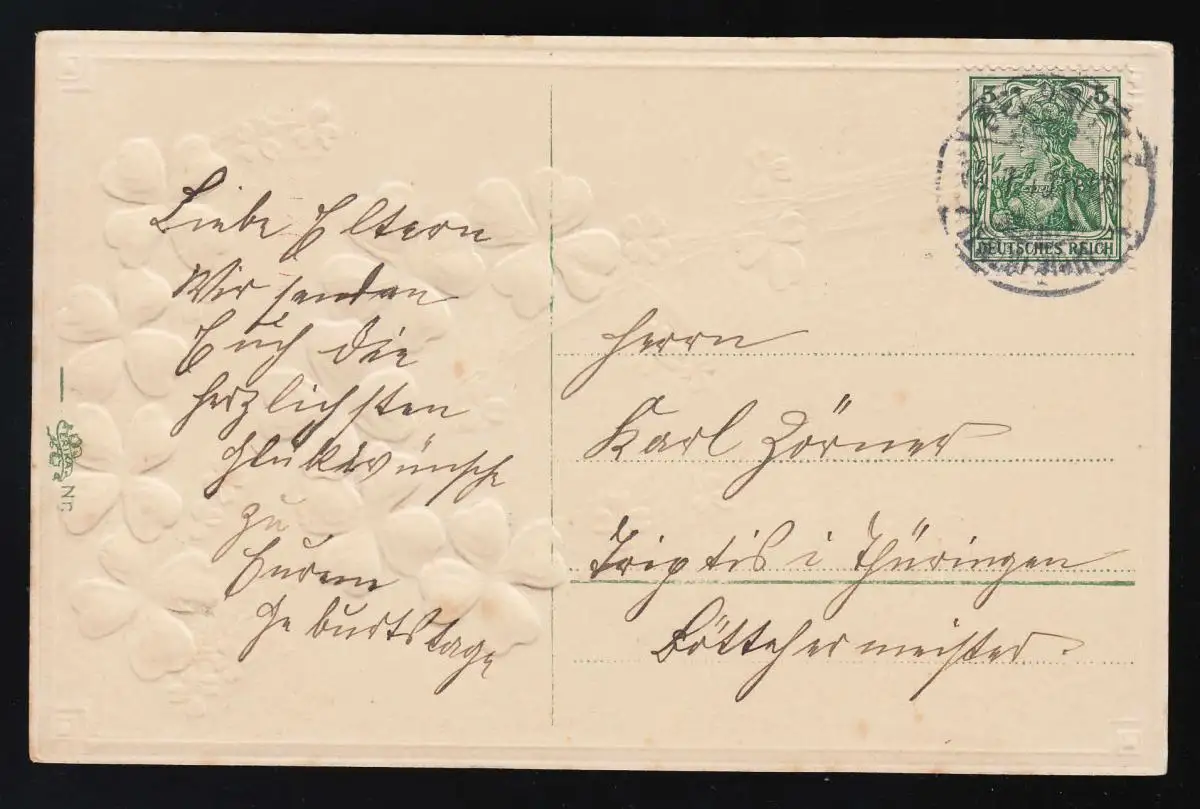 Liebe Eltern
Wir senden
Euch die
herzlichsten
Glükwünsche
zu
Eurem
Geburtstage
5 5
DEUTSCHES REICH
Herrn
Karl Zörner
Triptis i Thüringen
Böttchermeister.
ERIKA
Nr.